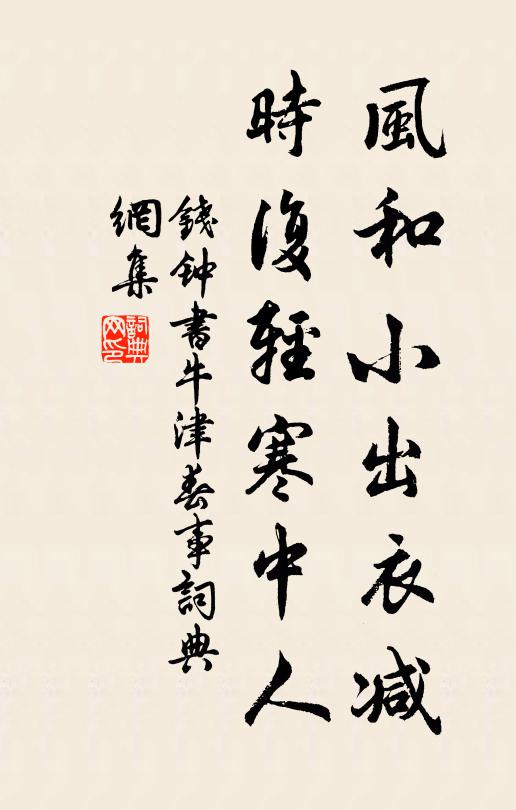 風和小出衣减
時復輕寒中人
錢钟書牛津春事詞典
網集
詞典
网印